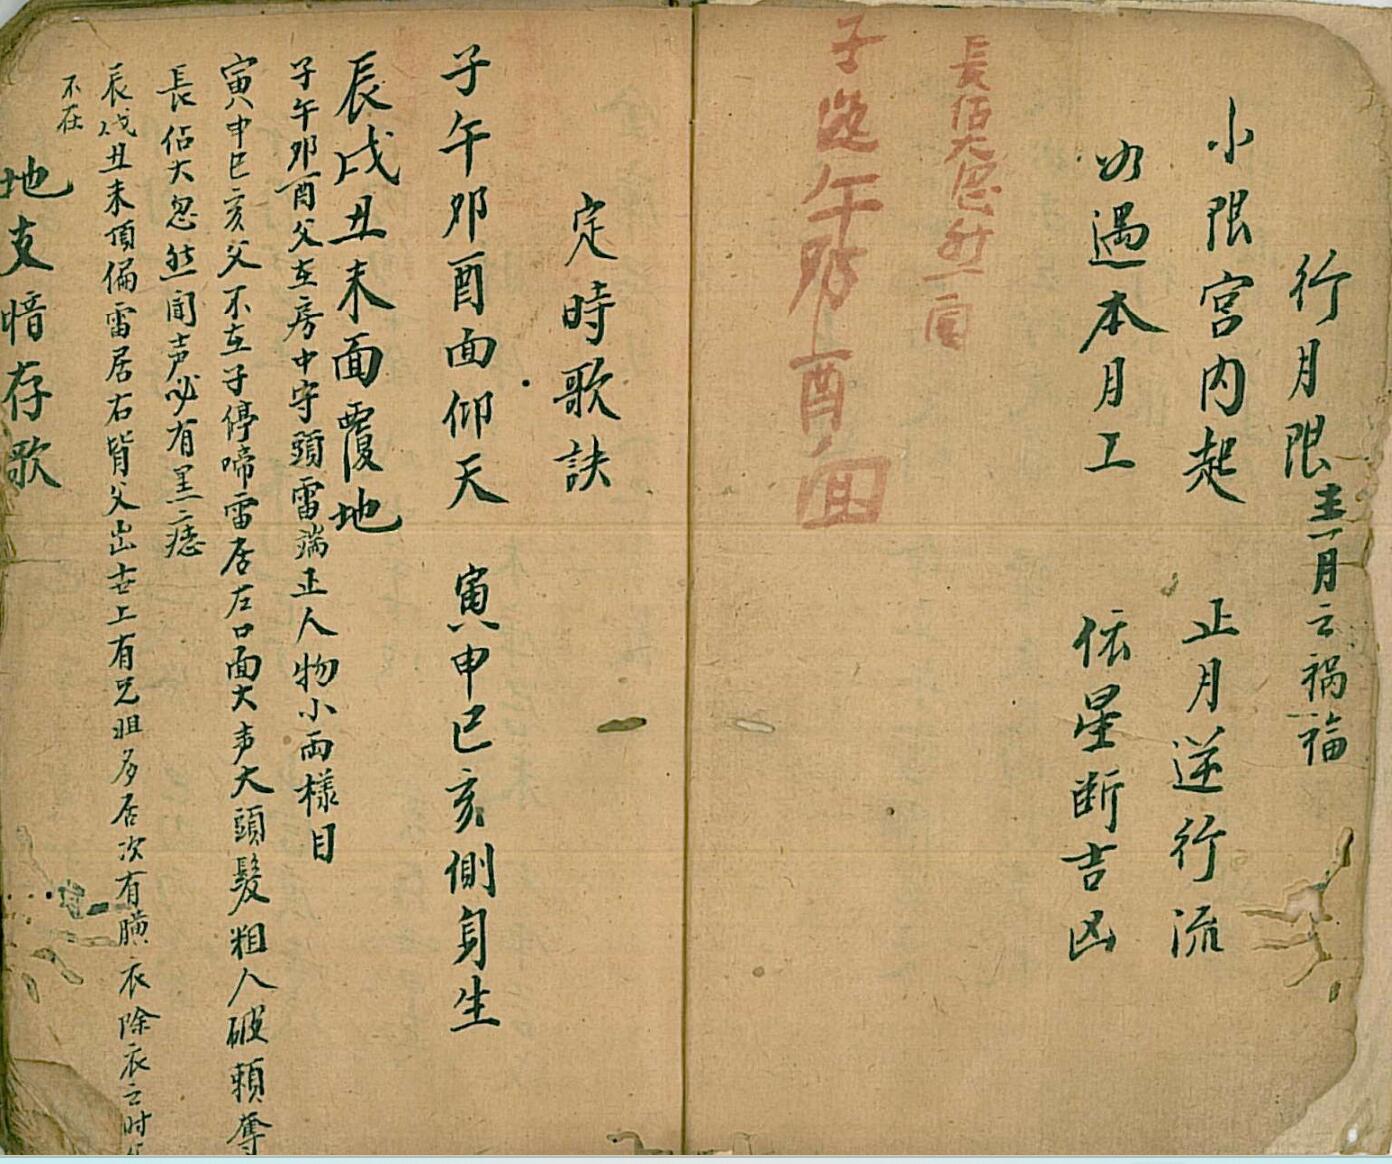 行月限主一月之禍福
小限宮内起 正月逆行流
如遇本月工 依星断吉凶
長佰大忽然一面
子午卯酉面
定時歌訣
子午卯酉面仰天 寅申巳亥側身生
辰戌丑未面覆地
子午卯酉父在房中守頭雷端正人物小両様目
寅申巳亥父不在子停啼雷居左口面大声大頭髮粗人破頼奪
長佰大忽然聞声必有黒痣
辰戌丑未頂偏雷居右皆父出去上有兄姐多居次有衣除衣之时
不在
地支惜存歌